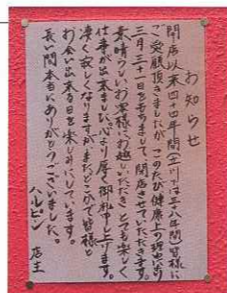 お知らせ
開店以来四十四年間(立川では三十八年間)皆様に
ご愛顧頂きましたが、このたび健康上の理由により
三月三十一日をもちまして、閉店させていただきます。
素晴らしいお客様にお越しいただき、とても楽しく
仕事が出来ました。心より厚く御礼申し上げます。
凄く寂しくなりますが、またどこかで皆様と
お会い出来る日を楽しみにしています。
長い間本当にありがとうございました。
ハルピン 店主